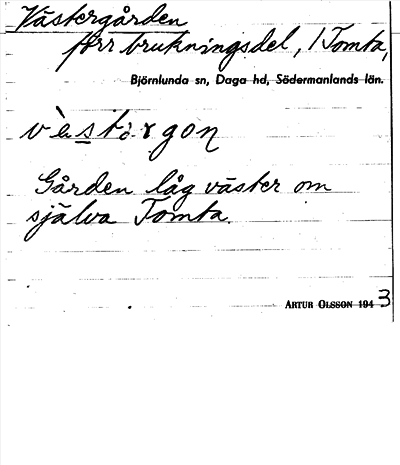 Västergården
förr brukningsdel, i Tomta,
Björnlunda sn, Daga hd, Södermanlands län.
Gården låg väster om
själva Tomta.
ARTUR OLSSON 1943